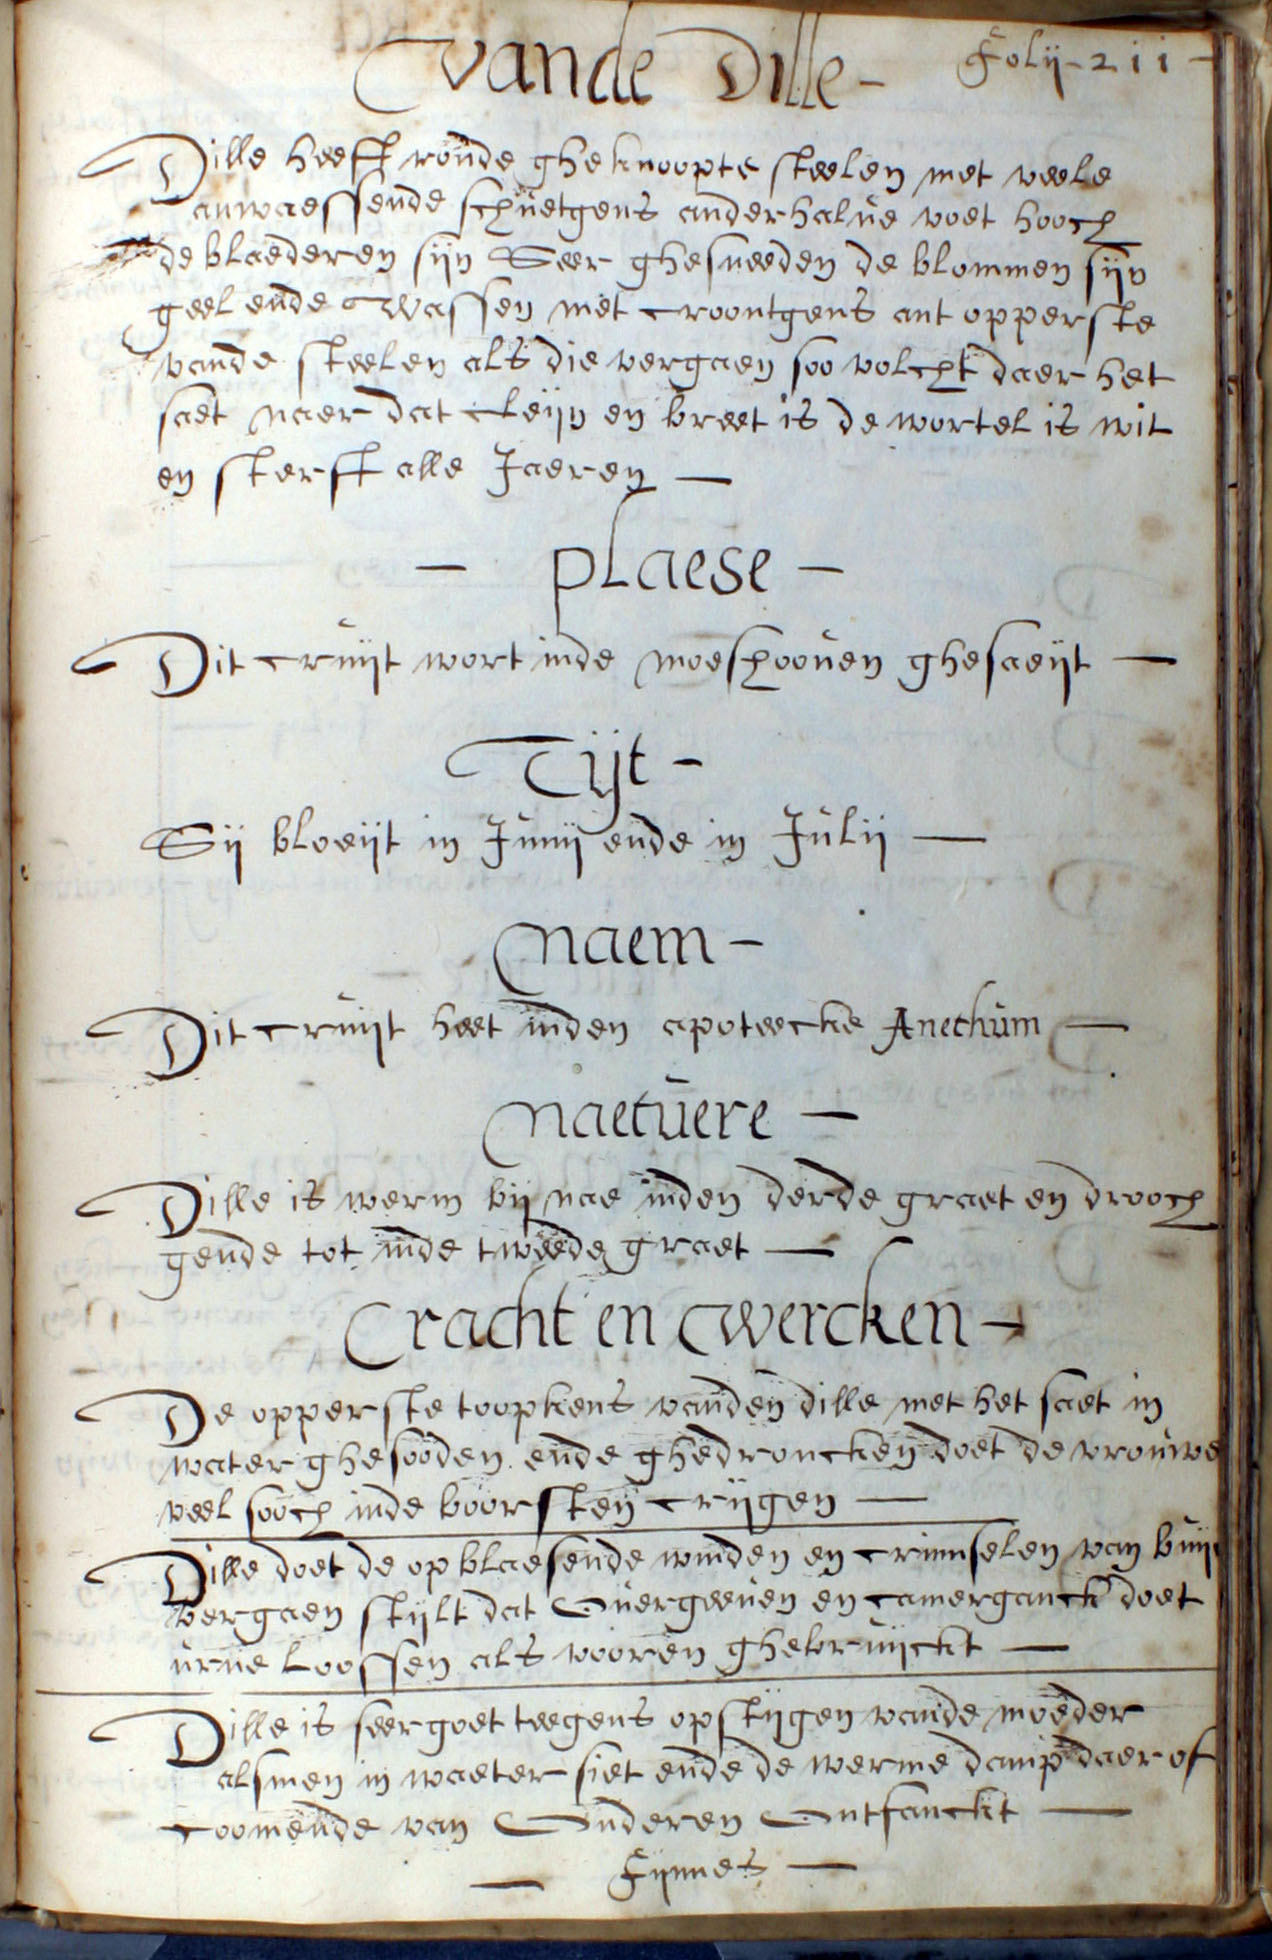 Vande Dille - Folij - 211 -
Dille heeft ronde gheknoopte steelen met veele
aenwaessende schuetgens anderhalve voet hooch
de blaederen sijn Seer ghesneeden de blommen sijn
geel ende wassen met croontgens ant opperste
vande steelen als die vergaen soo volcht daer het
saet naer dat cleijn en breet is de wortel is wit
en sterft alle Jaeren —
— plaese —
Dit cruijt wort inde moeshooven ghesaeijt —
Tijt -
Sij bloeijt in Junij ende in Julij —
Naem —
Dit cruijt heet inden apoteecke Anethum —
Naetuere —
Dille is werm bij nae inden derde graet en drooch
gende tot inde tweede graet —
Cracht en wercken —
De opperste toopkens vanden dille met het saet in
water ghesooden ende ghedroncken doet de vrouwe
veel sooch inde boorsten crijgen —
Dille doet de opblaesende winden en crimselen van buij
vergaen stijlt dat overgeeven en camerganck doet
urine Loossen als vooren ghebruijckt —
Dille is seer goet teegens opstijgen vande moeder
alsmen in waeter siet ende de werme damp daer of
coomende van onderen ontfanckt —
— Fijnnes —